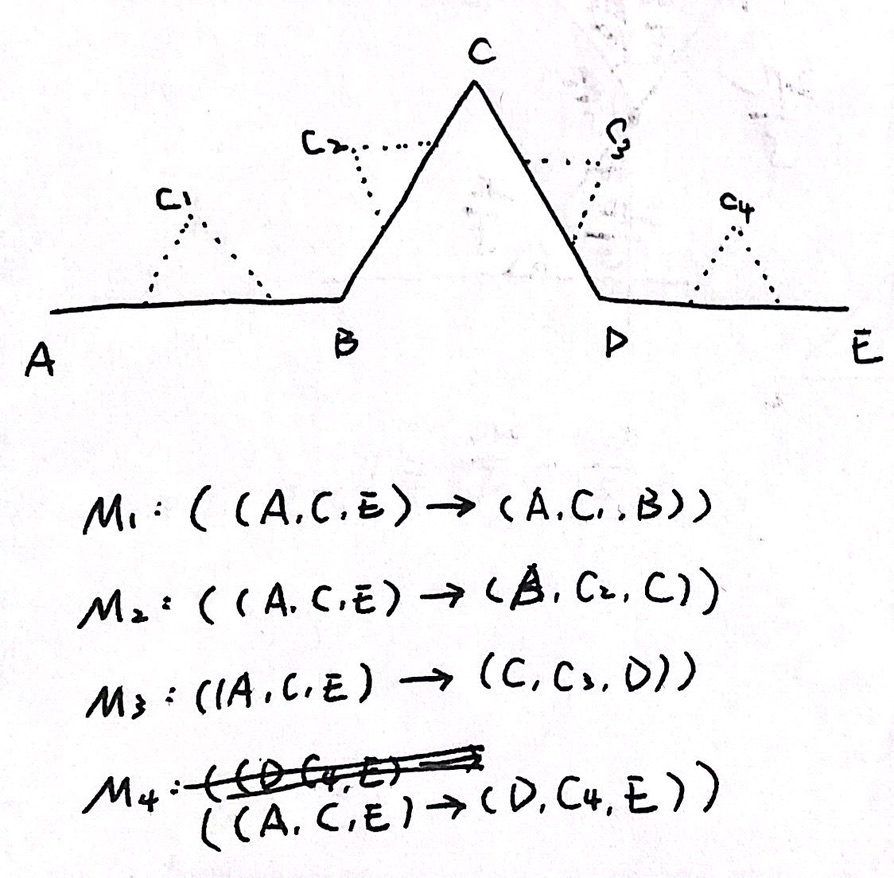 C
C2
C3
C1
C4
A
B
D
E
M1: ((A,C,E) → (A,C1,B))
M2: ((A,C,E) → (B,C2,C))
M3: ((A,C,E) → (C,C3,D))
M4: ((D,C4,E) →
((A,C,E) → (D,C4,E))